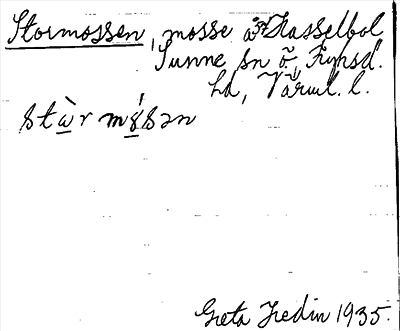 Stormossen, mosse å Hasselbol
Sunne sn ö, Fryksd.
hd, Värml. l.
stὼr mǿsən
Greta Hedin 1935.